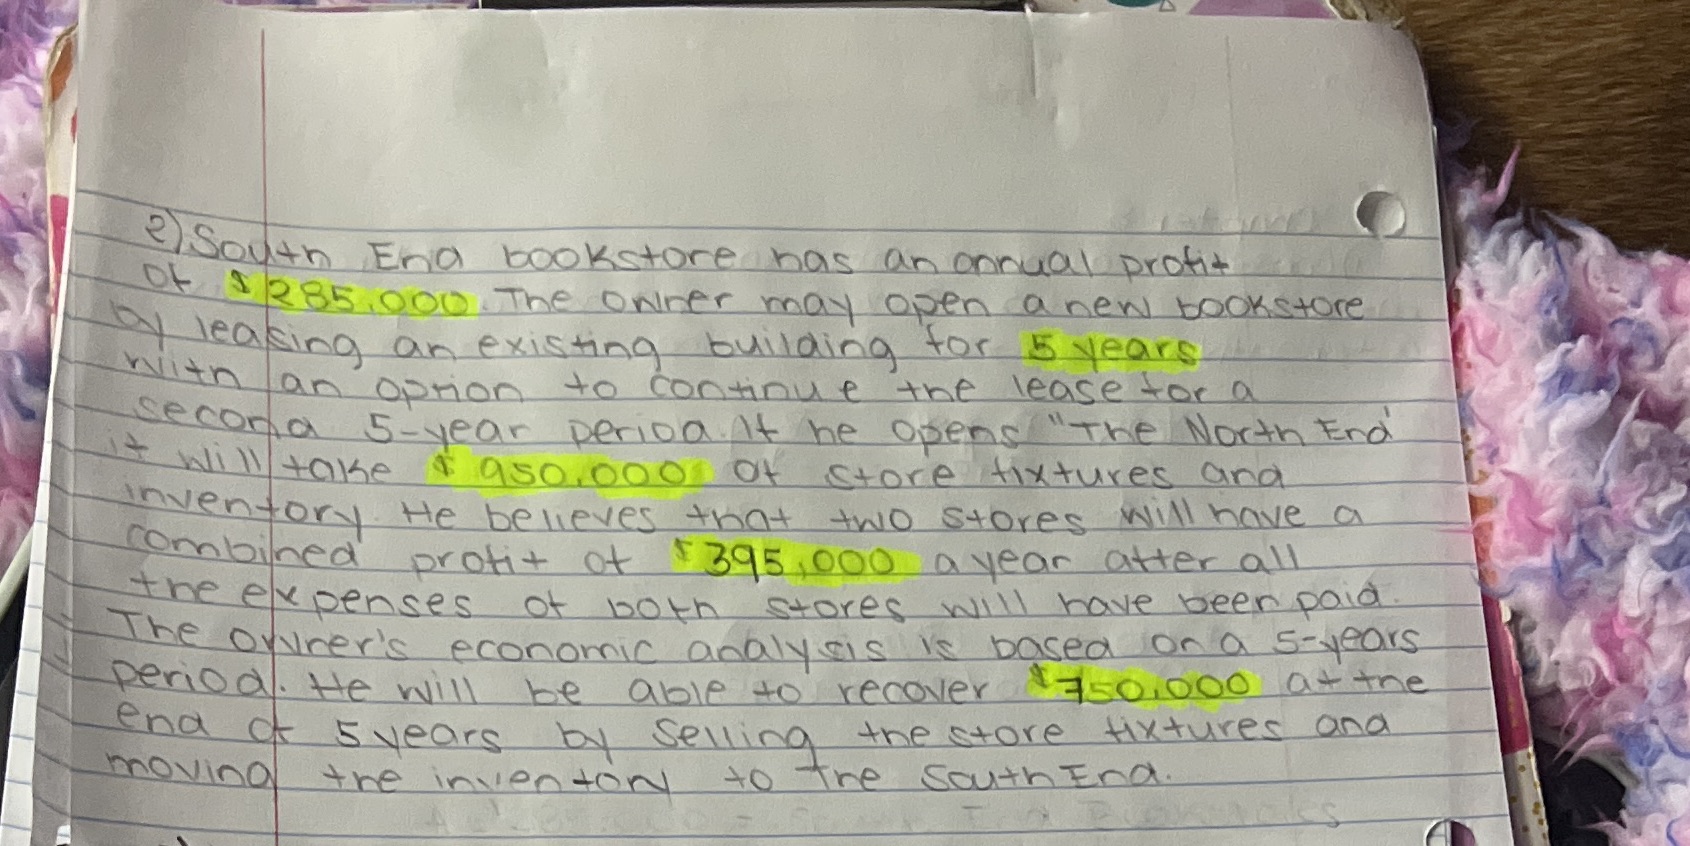 2) South End bookstore has an annual profit
of $285,000. The owner may open a new bookstore
by leasing an existing building for 5 years
with an option to continue the lease for a
second 5-year period. If he opens "The North End'
it will take $950,000 of store fixtures and
inventory. He believes that two stores will have a
combined profit of $395,000 a year after all
the expenses of both stores will have been paid.
The owner's economic analysis is based on a 5-years
period. He will be able to recover $750,000 at the
end of 5 years by selling the store fixtures and
moving the inventory to the South End.